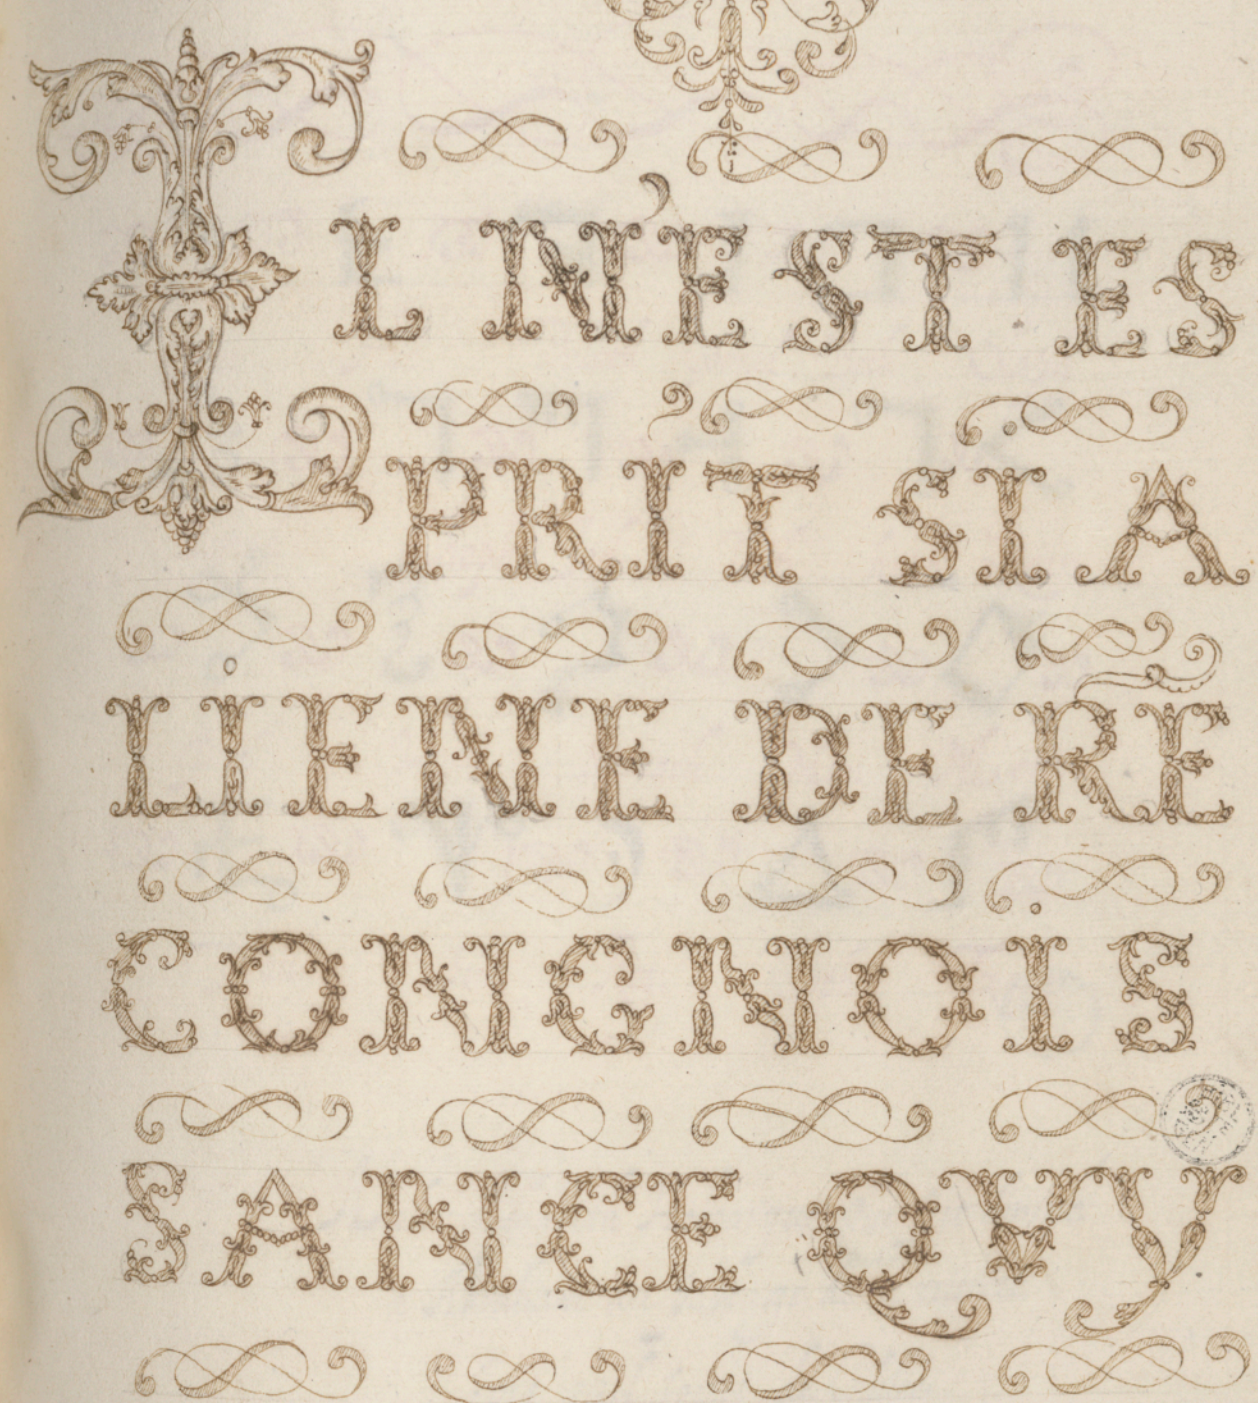 IL N'EST ES
PRIT SI A
LIENE DE RE
CONGNOIS
SANCE QVY